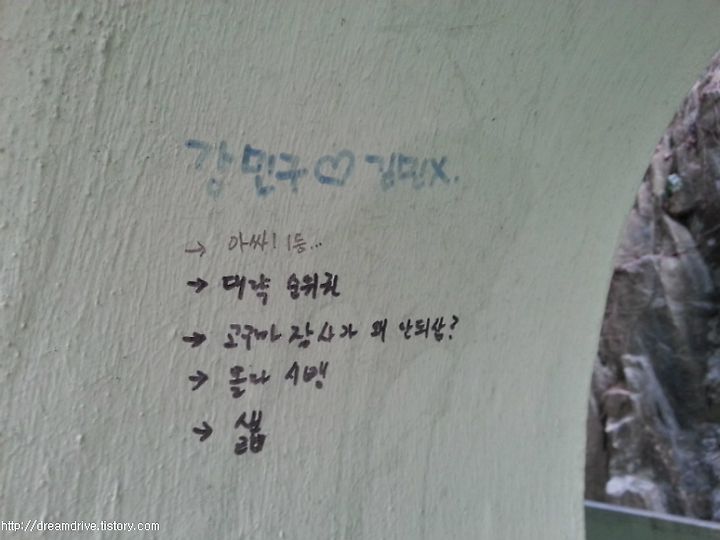 강민구♡김민X.
→ 아싸! 1등...
→ 대략 순위권
→ 고구마 장사가 왜 안되삼?
→ 몰라 시밤
→ 쉛
http://dreamdrive.tistory.com